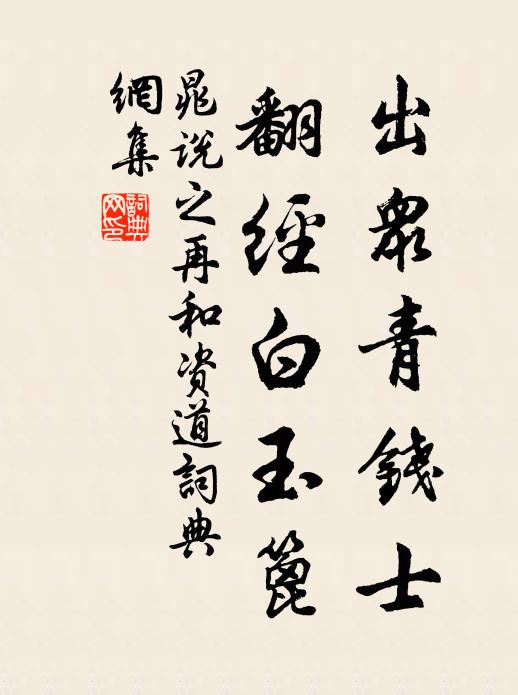 出眾青錢士
翻經白玉篦
晁说之再和资道詞典
網集
詞典网印